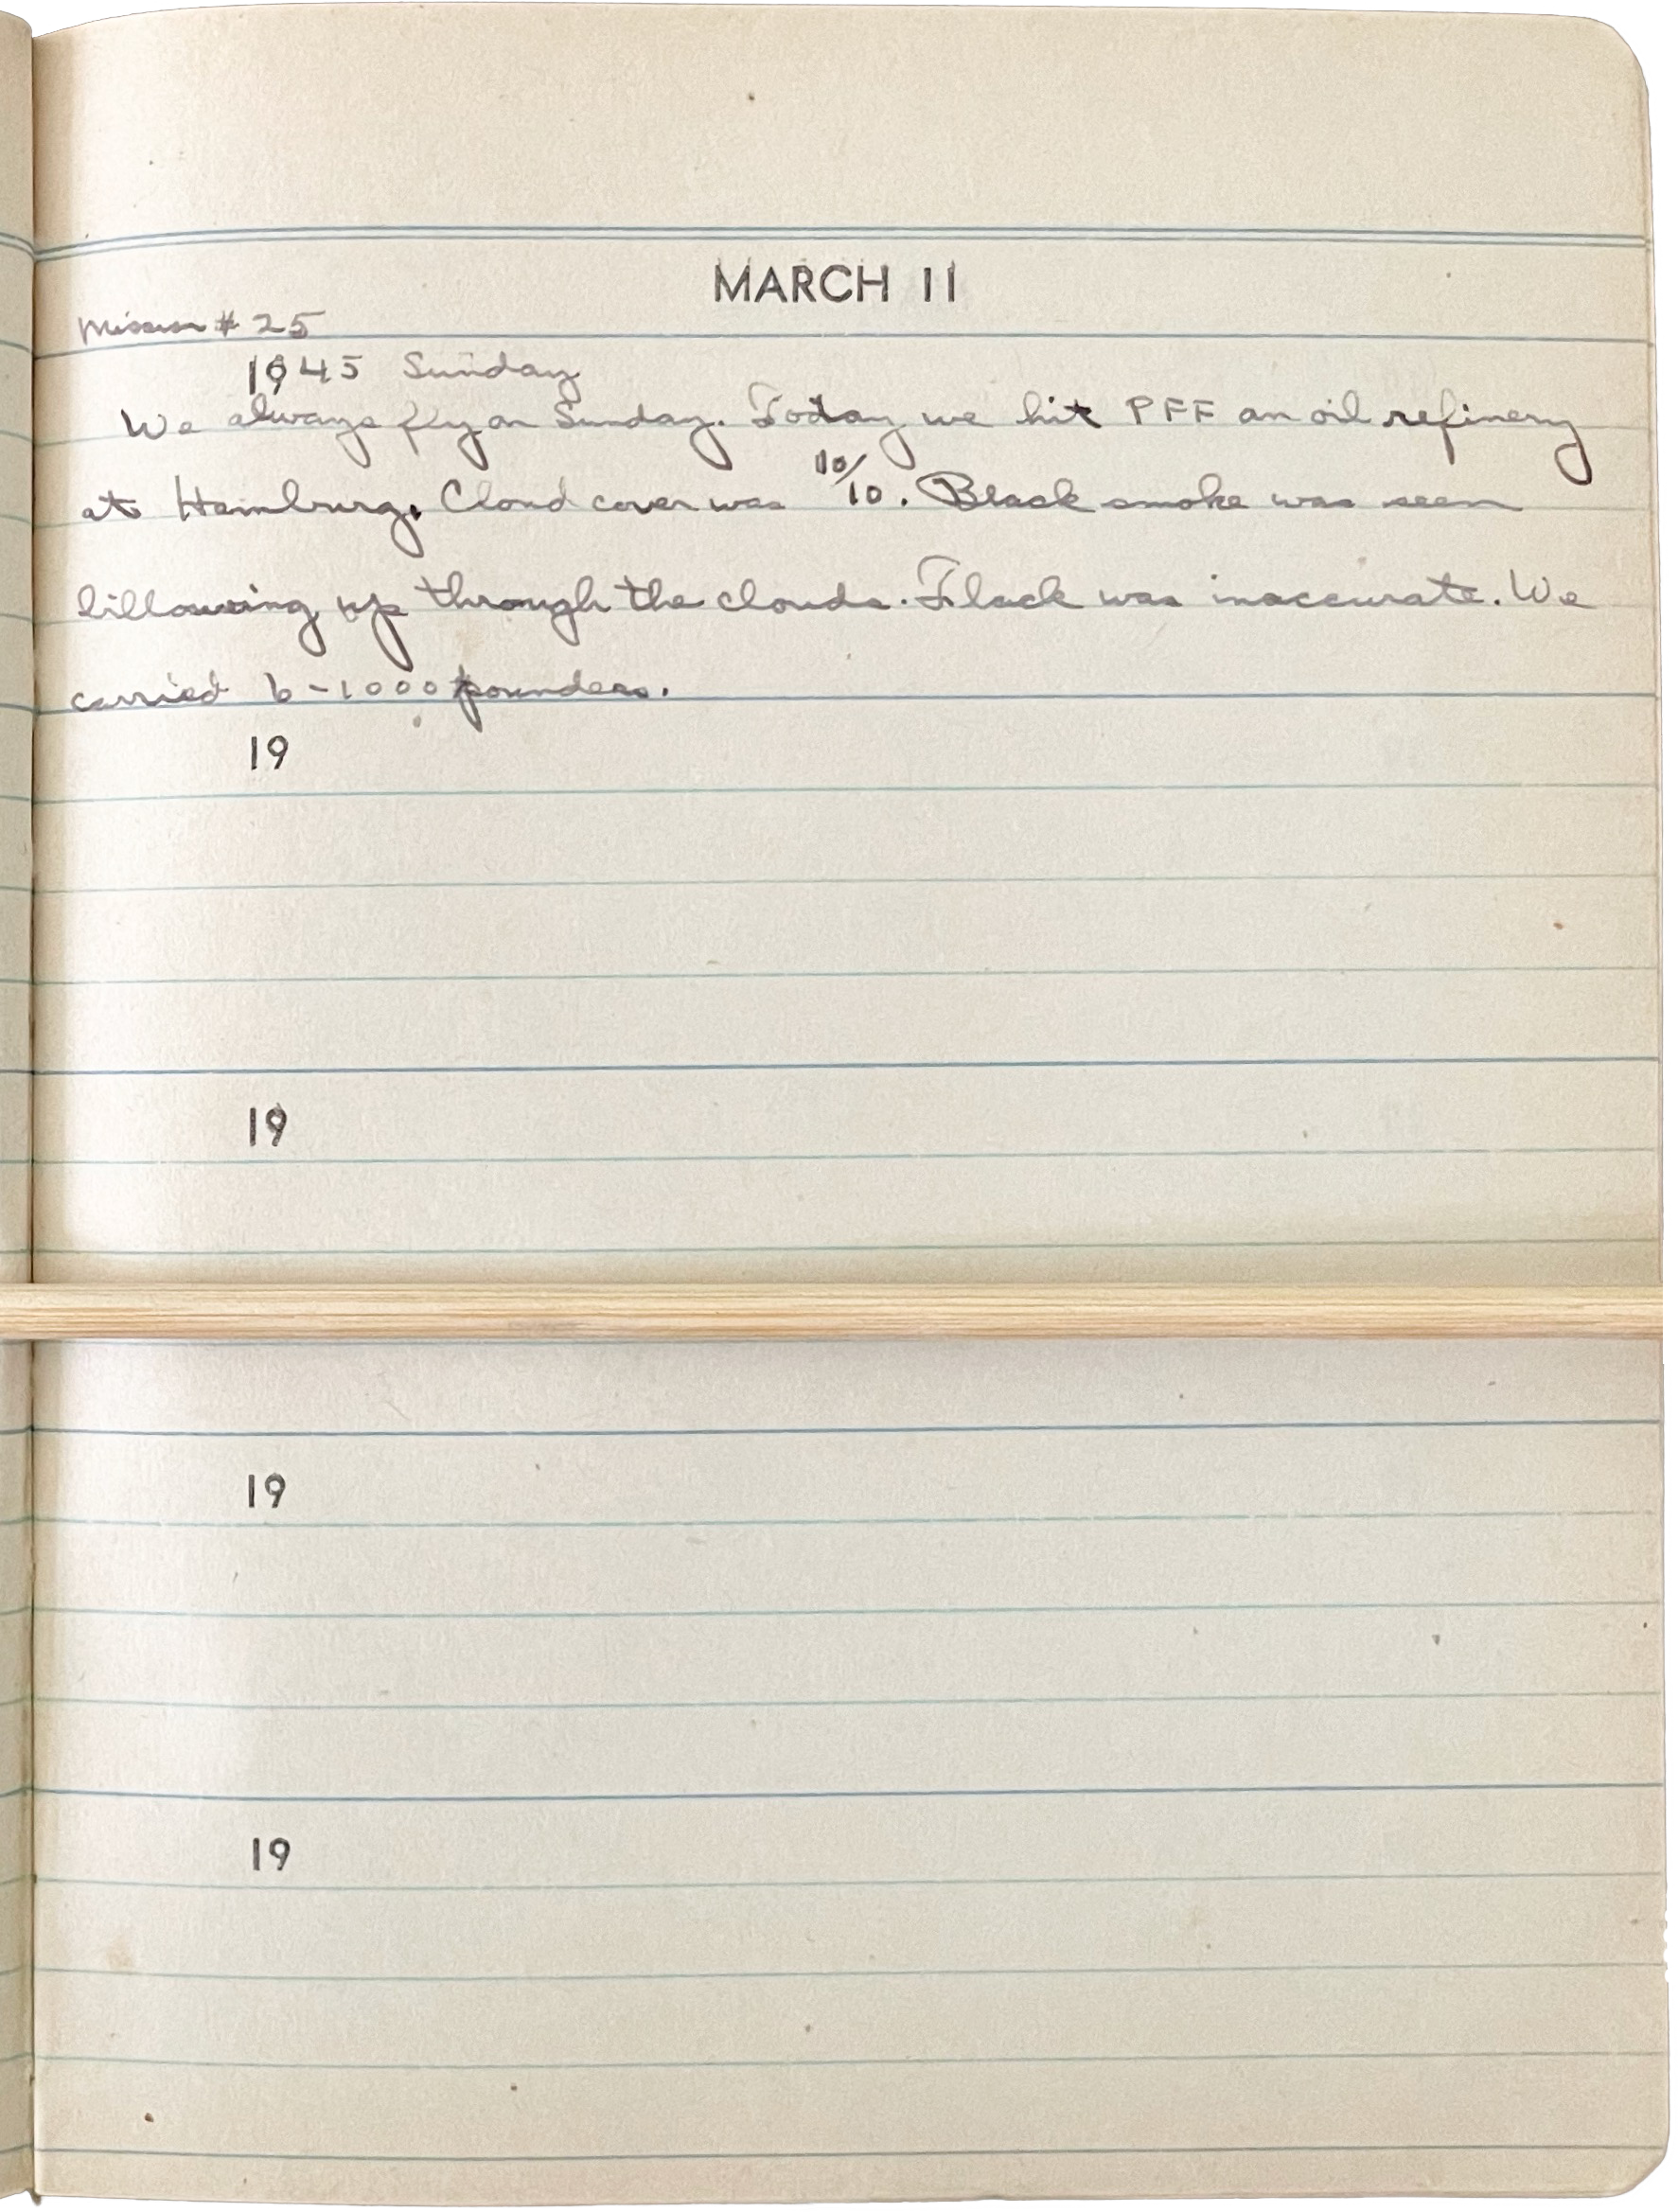 MARCH 11
Mission # 25
1945 Sunday
We always fly on Sunday. Today we hit PFF an oil refinery
at Hamburg. Cloud cover was 10/10. Black smoke was seen
billowing up through the clouds. Flack was inaccurate. We
carried 6-1000 pounders.
19
19
19
19